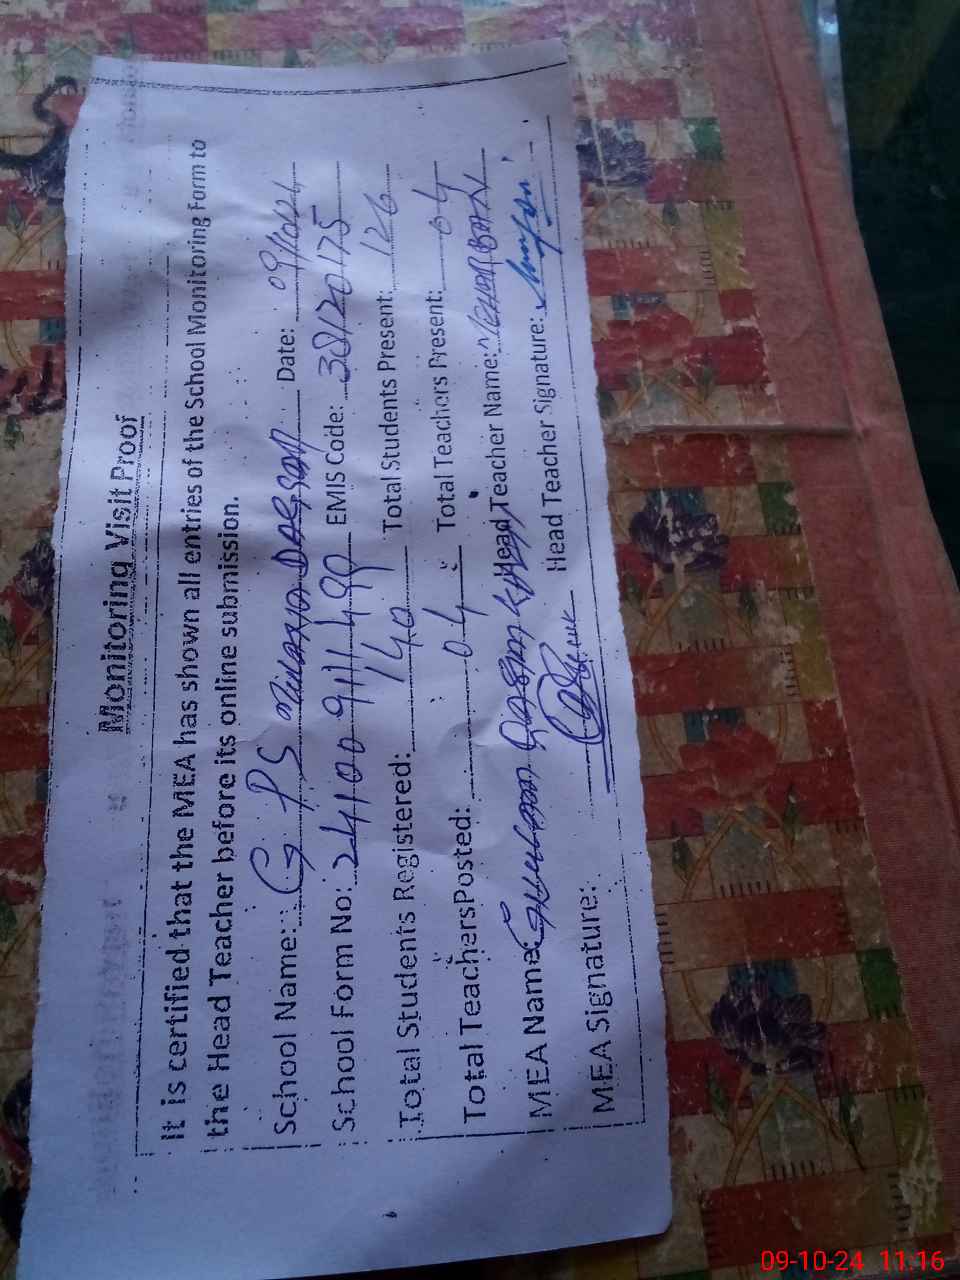 Monitoring Visit Proof
It is certified that the MEA has shown all entries of the School Monitoring Form to
the Head Teacher before its online submission.
School Name: G P S Date: 09/10/24
School Form No: EMIS Code: 38120175
Total Students Registered: 140 Total Students Present: 126
Total Teachers Posted: 04 Total Teachers Present: 04
MEA Name: Ghulam Qasim Khan Head Teacher Name: MEHARBAN
MEA Signature: Head Teacher Signature:
09-10-24 11:16